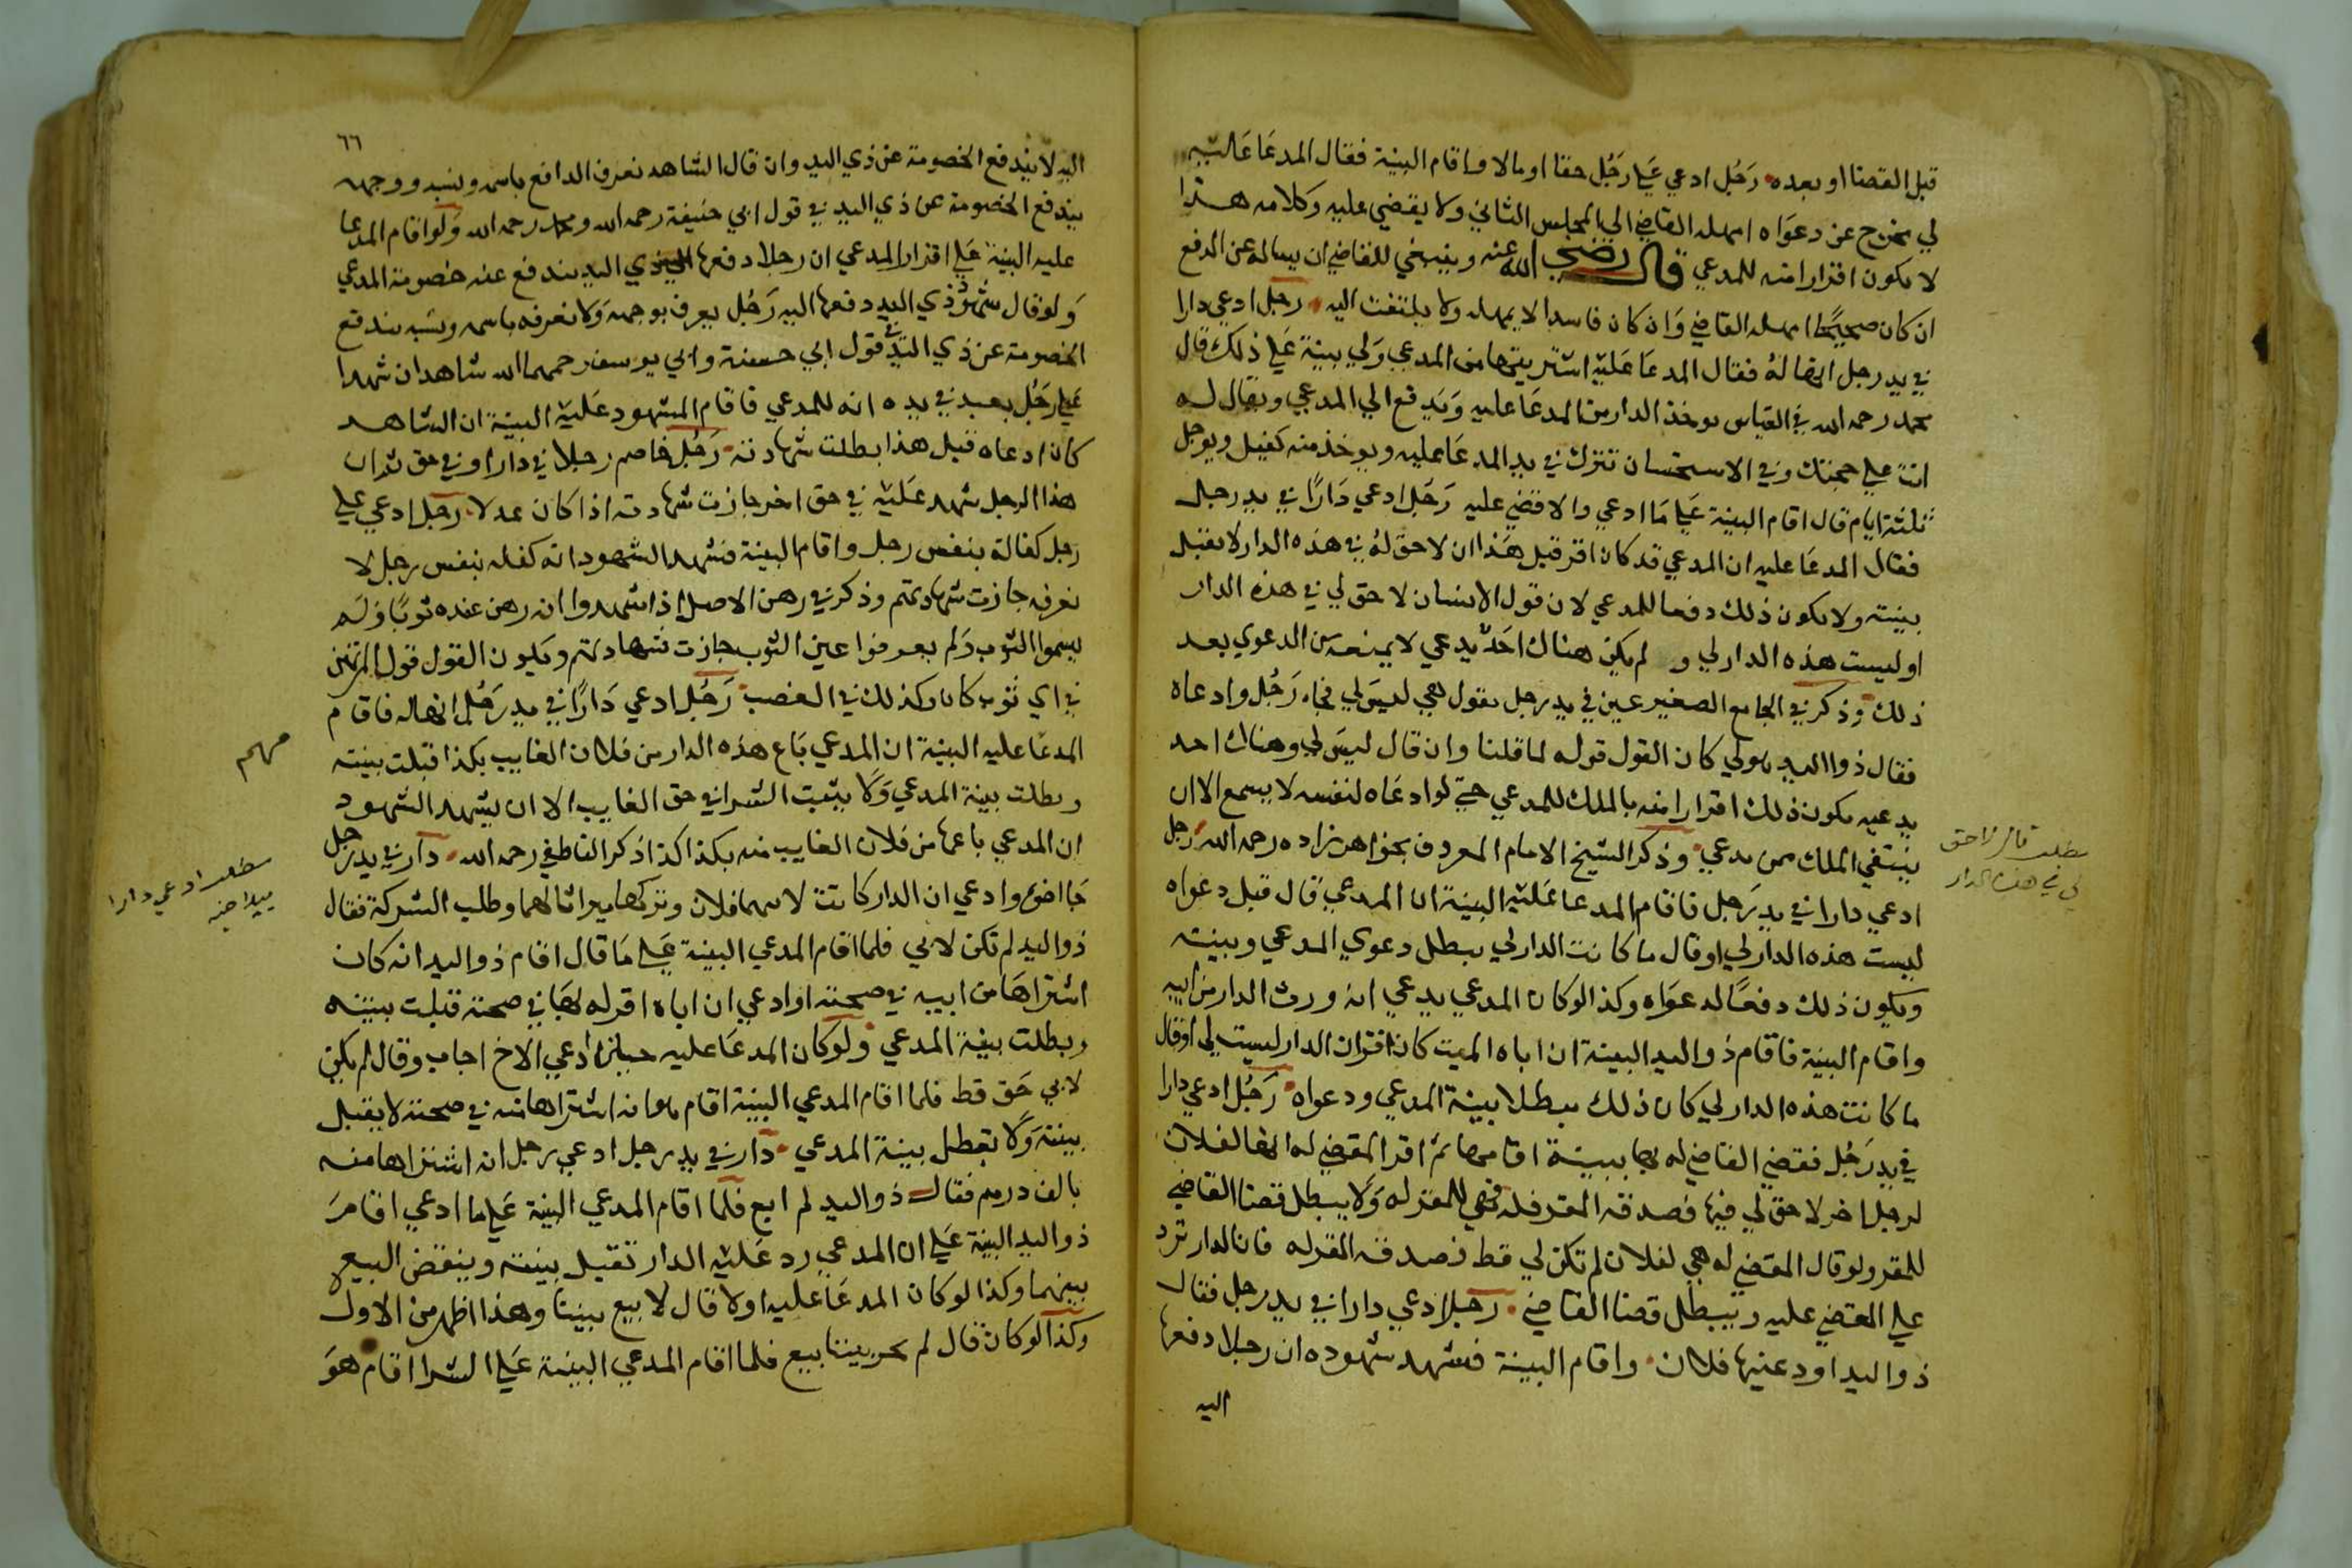 قبل القضا او بعده رجل ادعي علي رجل حقا او مالا واقام البينة فقال المدعا عليه
لي مخرج عن دعواه امهله القاضي الي المجلس الثاني ولا يقضي عليه وكلامه هذا
لا يكون اقرارا منه للمدعي قال رضي الله عنه وينبغي للقاضي ان يساله عن الدفع
ان كان صحيحا امهله القاضي وان كان فاسدا لا يمهله ولا يلتفت اليه رجل ادعي دارا
في يد رجل انها له فقال المدعا عليه اشتريتها من المدعي ولي بينة علي ذلك قال
محمد رحمه الله في القياس يوخذ الدار من المدعا عليه ويدفع الي المدعي ويقال له
انت علي حجتك وفي الاستحسان تترك في يد المدعا عليه ويوخذ منه كفيل ويوجل
ثلثة ايام قال اقام البينة علي ما ادعي والا قضي عليه رجل ادعي دارا في يد رجل
فقال المدعا عليه ان المدعي قد كان اقر قبل هذا ان لا حق له في هذه الدار لا تقبل
بينته ولا يكون ذلك دفعا للمدعي لان قول الانسان لا حق لي في هذه الدار
او ليست هذه الدار لي و لم يكن هناك احد يدعي لا يمنعه من الدعوي بعد
ذلك وذكر في الجامع الصغير عين في يد رجل يقول هي ليس لي فجاء رجل وادعاه
فقال ذوا اليد هو لي كان القول قوله لما قلنا وان قال ليس لي وهناك احد
يدعيه يكون ذلك اقرارا منه بالملك للمدعي حتي لو ادعاه لنفسه لا يسمع الا ان
ينتفي الملك ممن يدعي وذكر الشيخ الامام المعروف بخواهر زاده رحمه الله رجل
ادعي دارا في يد رجل فاقام المدعا عليه البينة ان المدعي قال قبل دعواه
ليست هذه الدار لي او قال ما كانت الدار لي يبطل دعوي المدعي وبينته
ويكون ذلك دفعا لدعواه وكذا لو كان المدعي يدعي انه ورث الدار من ابيه
واقام البينة فاقام ذو اليد البينة ان اباه الميت كان اقر ان الدار ليست لي او قال
ما كانت هذه الدار لي كان ذلك مبطلا بينة المدعي ودعواه رجل ادعي دارا
في يد رجل فقضي القاضي له بها ببينة اقامها ثم اقر المقضي له انها لفلان
لرجل اخر لا حق لي فيها فصدقه المقر فله فهي للمقر له ولا يبطل قضا القاضي
للمقر ولو قال المقضي له هي لفلان لم تكن لي قط فصدقه المقر له فان الدار ترد
علي المقضي عليه ويبطل قضا القاضي رجل ادعي دارا في يد رجل فقال
ذو اليد اودعنيها فلان واقام البينة فشهد شهوده ان رجلا دفعها
اليه
مطلب قال لا حق
لي في هذه الدار
٦٦
اليه لا يندفع الخصومة عن ذي اليد وان قال الشاهد نعرف الدافع باسمه ونسبه ووجهه
يندفع الخصومة عن ذي اليد في قول ابي حنيفة رحمه الله ومحمد رحمه الله ولو اقام المدعا
عليه البينة علي اقرار المدعي ان رجلا دفعها الي ذي اليد يندفع عنه خصومة المدعي
ولو قال شهود ذي اليد دفعها اليه رجل يعرف بوجهه ولا نعرفه باسمه ونسبه يندفع
الخصومة عن ذي اليد في قول ابي حنيفة وابي يوسف رحمهما الله شاهدان شهدا
علي رجل بعبد في يده انه للمدعي فاقام المشهود عليه البينة ان الشاهد
كان ادعاه قبل هذا بطلت شهادته رجل خاصم رجلا في دار او في حق ثم ان
هذا الرجل شهد عليه في حق اخر جازت شهادته اذا كان عدلا رجل ادعي علي
رجل كفالة بنفس رجل واقام البينة فشهد الشهود انه كفله بنفس رجل لا
نعرفه جازت شهادتهم وذكر في رهن الاصل اذا شهدوا انه رهن عنده ثوبا ولم
يسموا الثوب ولم يعرفوا عين الثوب جازت شهادتهم ويكون القول قول المرتهن
في اي ثوب كان وكذلك في الغصب رجل ادعي دارا في يد رجل انها له فاقام
المدعا عليه البينة ان المدعي باع هذه الدار من فلان الغايب بكذا قبلت بينته
وبطلت بينة المدعي ولا يثبت الشرا في حق الغايب الا ان يشهد الشهود
ان المدعي باعها من فلان الغايب منه بكذا كذا ذكر الناطفي رحمه الله دار في يد رجل
جا اخوه وادعي ان الدار كانت لابيهما فلان وتركها ميراثا لهما وطلب الشركة فقال
ذو اليد لم تكن لابي فلما اقام المدعي البينة علي ما قال اقام ذو اليد انه كان
اشتراها من ابيه في صحته او ادعي ان اباه اقر له بها في صحته قبلت بينته
وبطلت بينة المدعي ولو كان المدعا عليه حين ادعي الاخ اجاب وقال لم يكن
لابي حق قط فلما اقام المدعي البينة اقام هو انه اشتراها منه في صحته لا يقبل
بينته ولا تبطل بينة المدعي دار في يد رجل ادعي رجل انه اشتراها منه
بالف درهم فقال ذو اليد لم ابع فلما اقام المدعي البينة علي ما ادعي اقام
ذو اليد البينة علي ان المدعي رد عليه الدار تقبل بينته وينقض البيع
بينهما وكذا لو كان المدعا عليه اولا قال لا بيع بيننا وهذا اظهر من الاول
وكذا لو كان قال لم يجر بيننا بيع فلما اقام المدعي البينة علي الشرا اقام هو
مهم
مطلب ادعي دارا
بيد اخيه